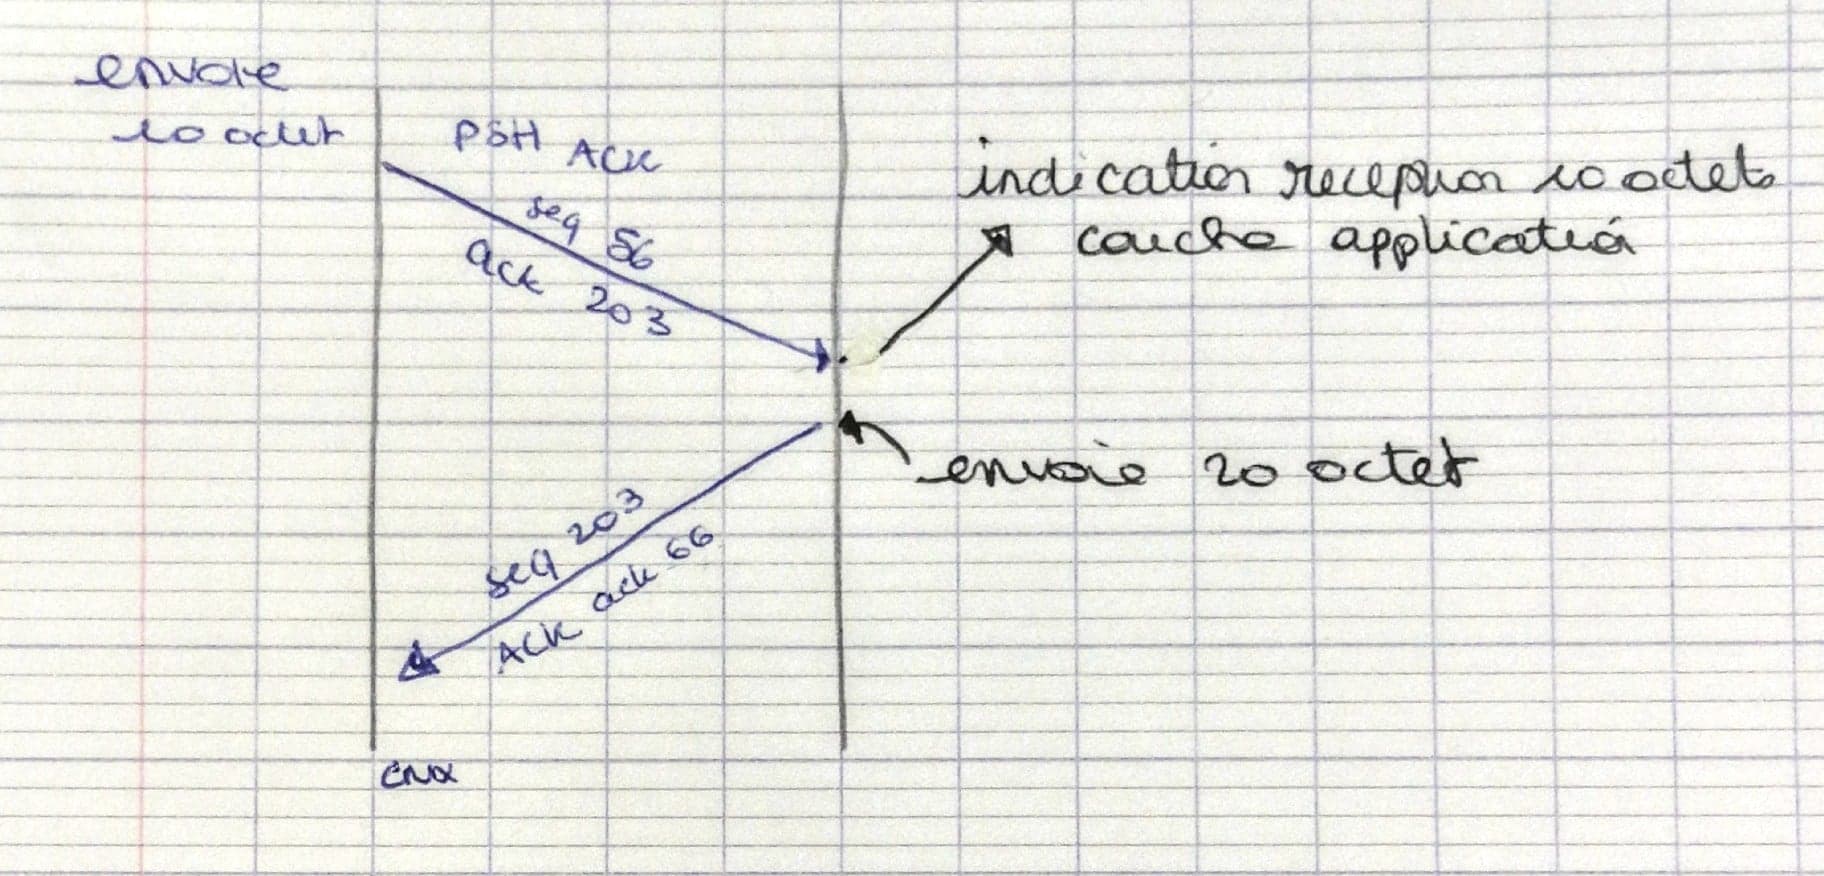 envoie
10 octet
PSH ACK
seq 56
ack 203
indication reception 10 octets
couche application
envoie 20 octet
seq 203
ACK ack 66
cnx